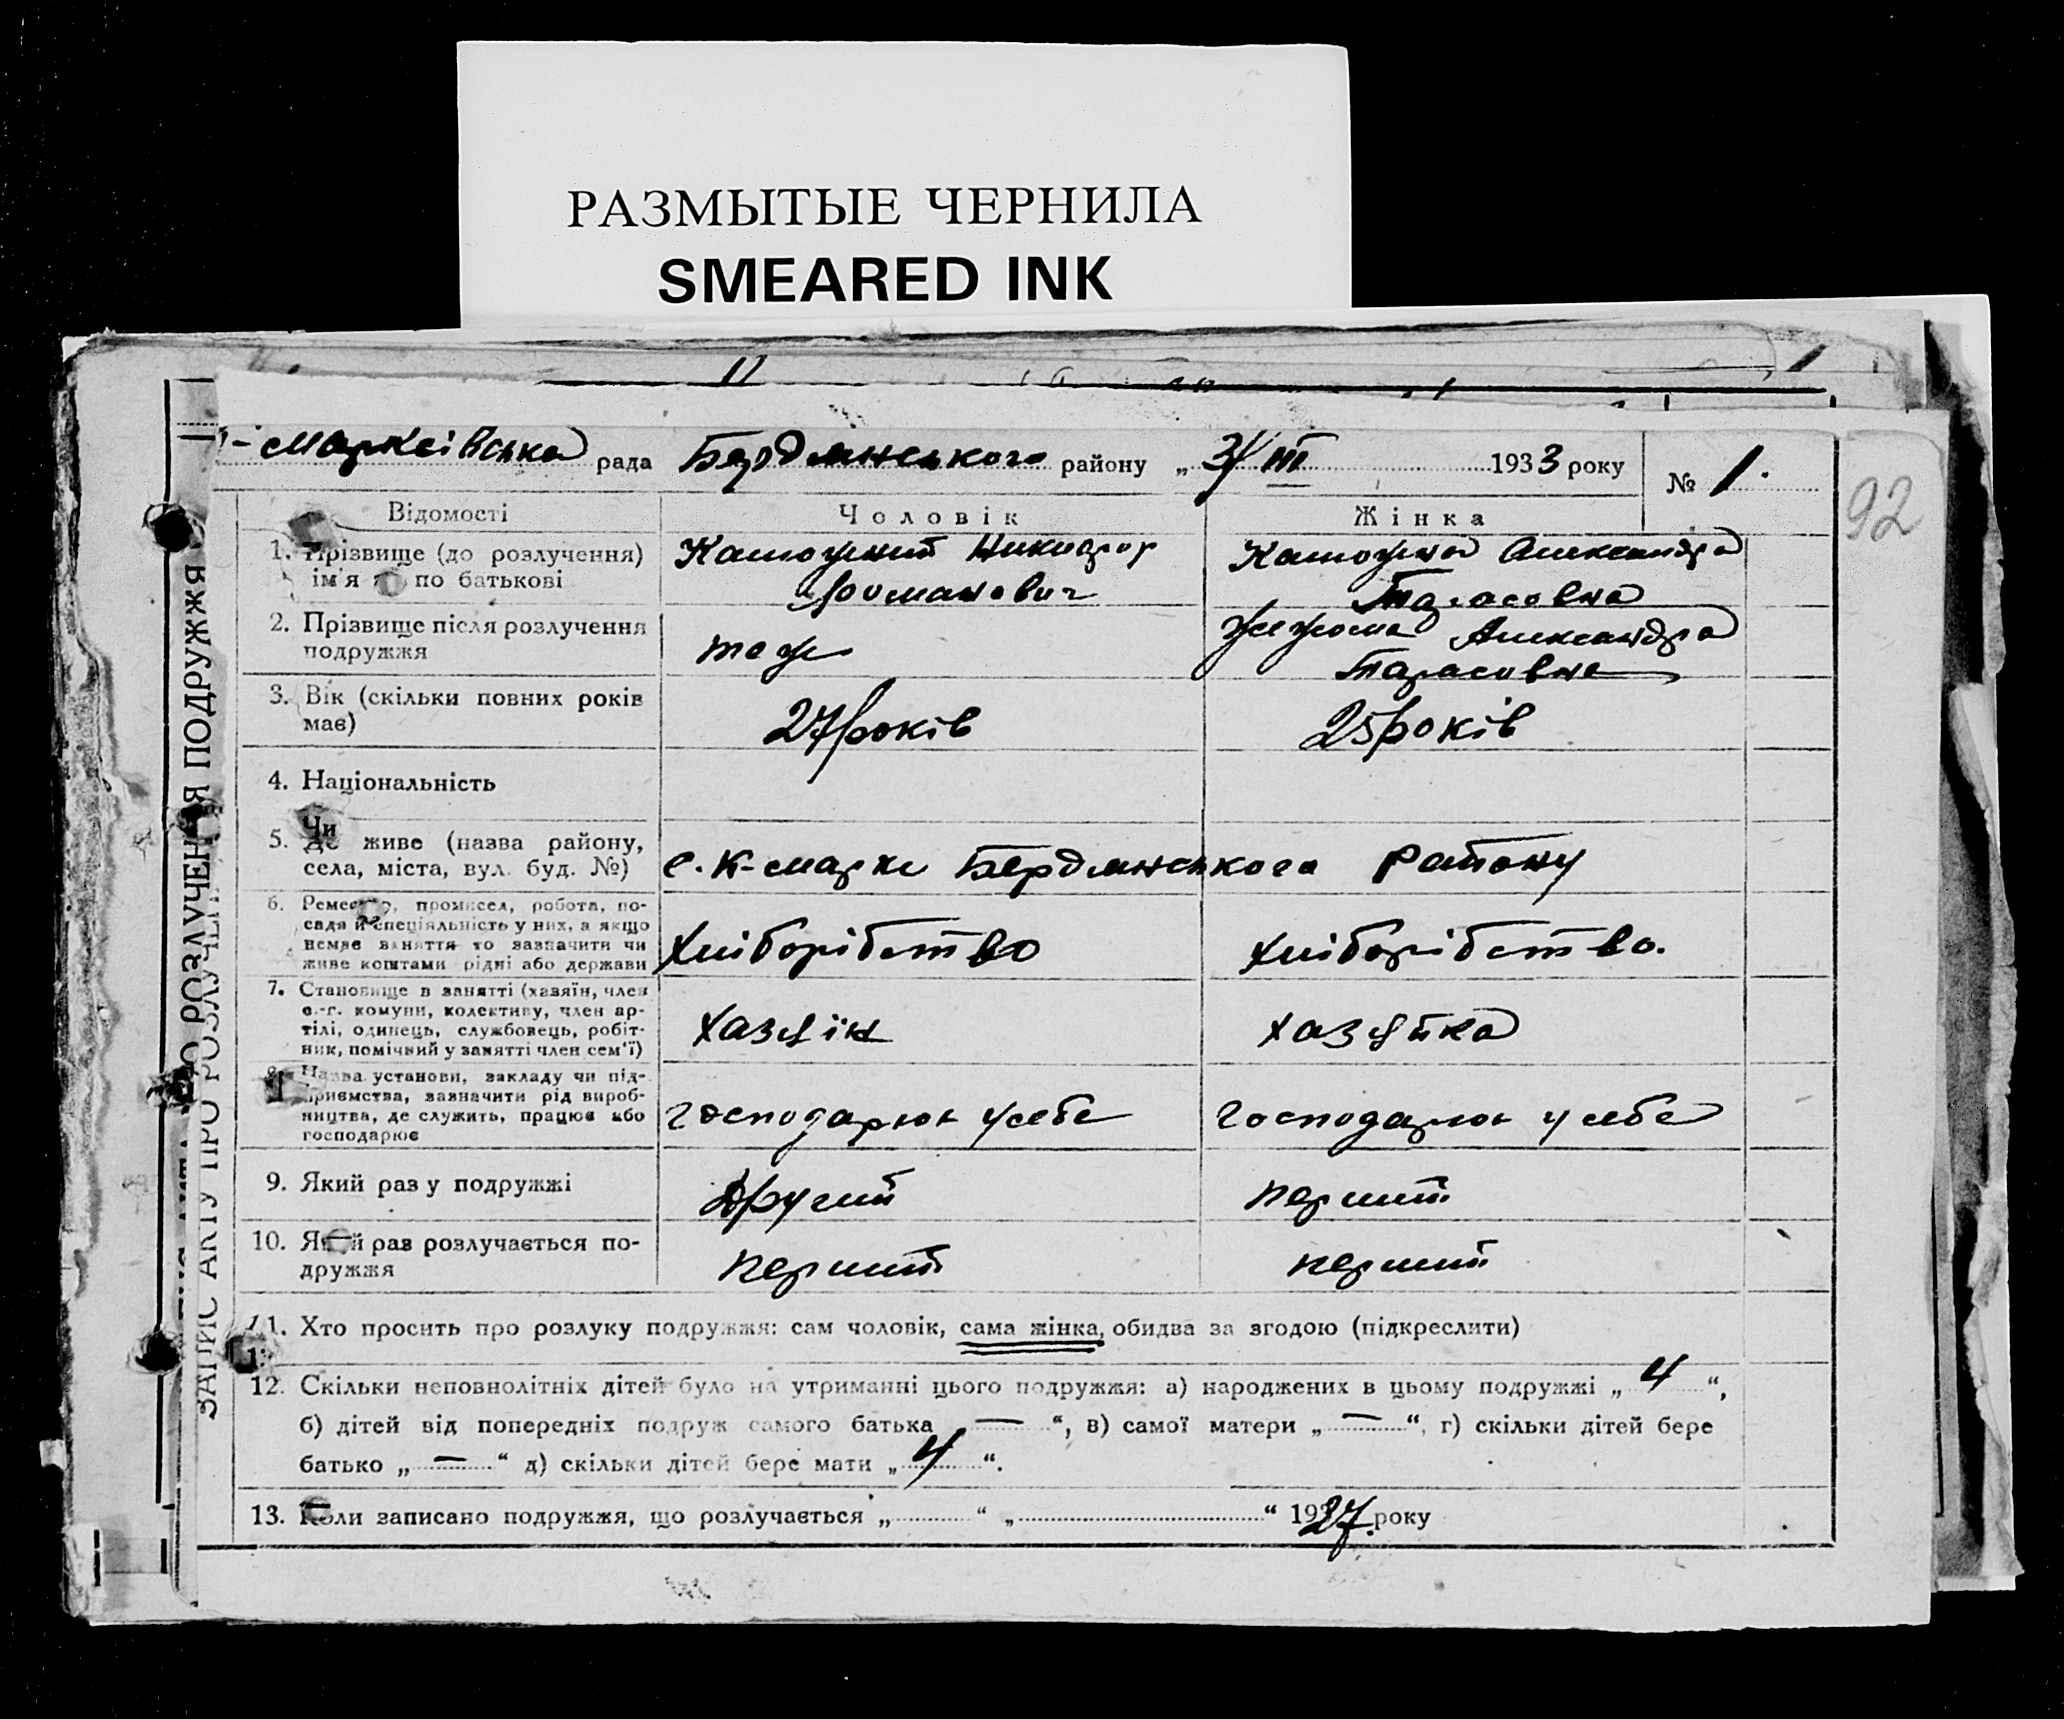 РАЗМЫТЫЕ ЧЕРНИЛА
SMEARED INK
ЗАПИС АКТУ ПРО РОЗЛУЧЕННЯ ПОДРУЖЖЯ
Маркеівська рада Бердянського району „ 3/III 1933 року № 1.
92
Відомості Чоловік Жінка
1. Прізвище (до розлучення) Никифор Александра
ім'я по батькові Романович Тарасовна
2. Прізвище після розлучення тож Александра
подружжя Тарасовна
3. Вік (скільки повних років 27 років 25 років
має)
4. Національність
5. Де живе (назва району,
села, міста, вул. буд. №) с. К-Марк Бердянського району
6. Ремество, промисел, робота, по-
сада й спеціяльність у них, а якщо
немає заняття то зазначити чи Хліборібство Хліборібство.
живе коштами рідні або держави
7. Становище в занятті (хазяїн, член
с.-г. комуни, колективу, член ар- Хазяїн Хазяйка
тілі, одинець, службовець, робіт-
ник, помічний у занятті член сем'ї)
8. Назва установи, закладу чи під-
приємства, зазначити рід вироб-
ництва, де служить, працює або Господарює у себе Господарює у себе
господарює
9. Який раз у подружжі Другий перший
10. Який раз розлучається по- перший перший
дружжя
11. Хто просить про розлуку подружжя: сам чоловік, сама жінка, обидва за згодою (підкреслити)
12. Скільки неповнолітніх дітей було на утриманні цього подружжя: а) народжених в цьому подружжі „ 4 “,
б) дітей від попередніх подруж самого батька „ — “, в) самої матери „ — “, г) скільки дітей бере
батько „ — “ д) скільки дітей бере мати „ 4 “.
13. Коли записано подружжя, що розлучається „ “ „ “ 1927 року